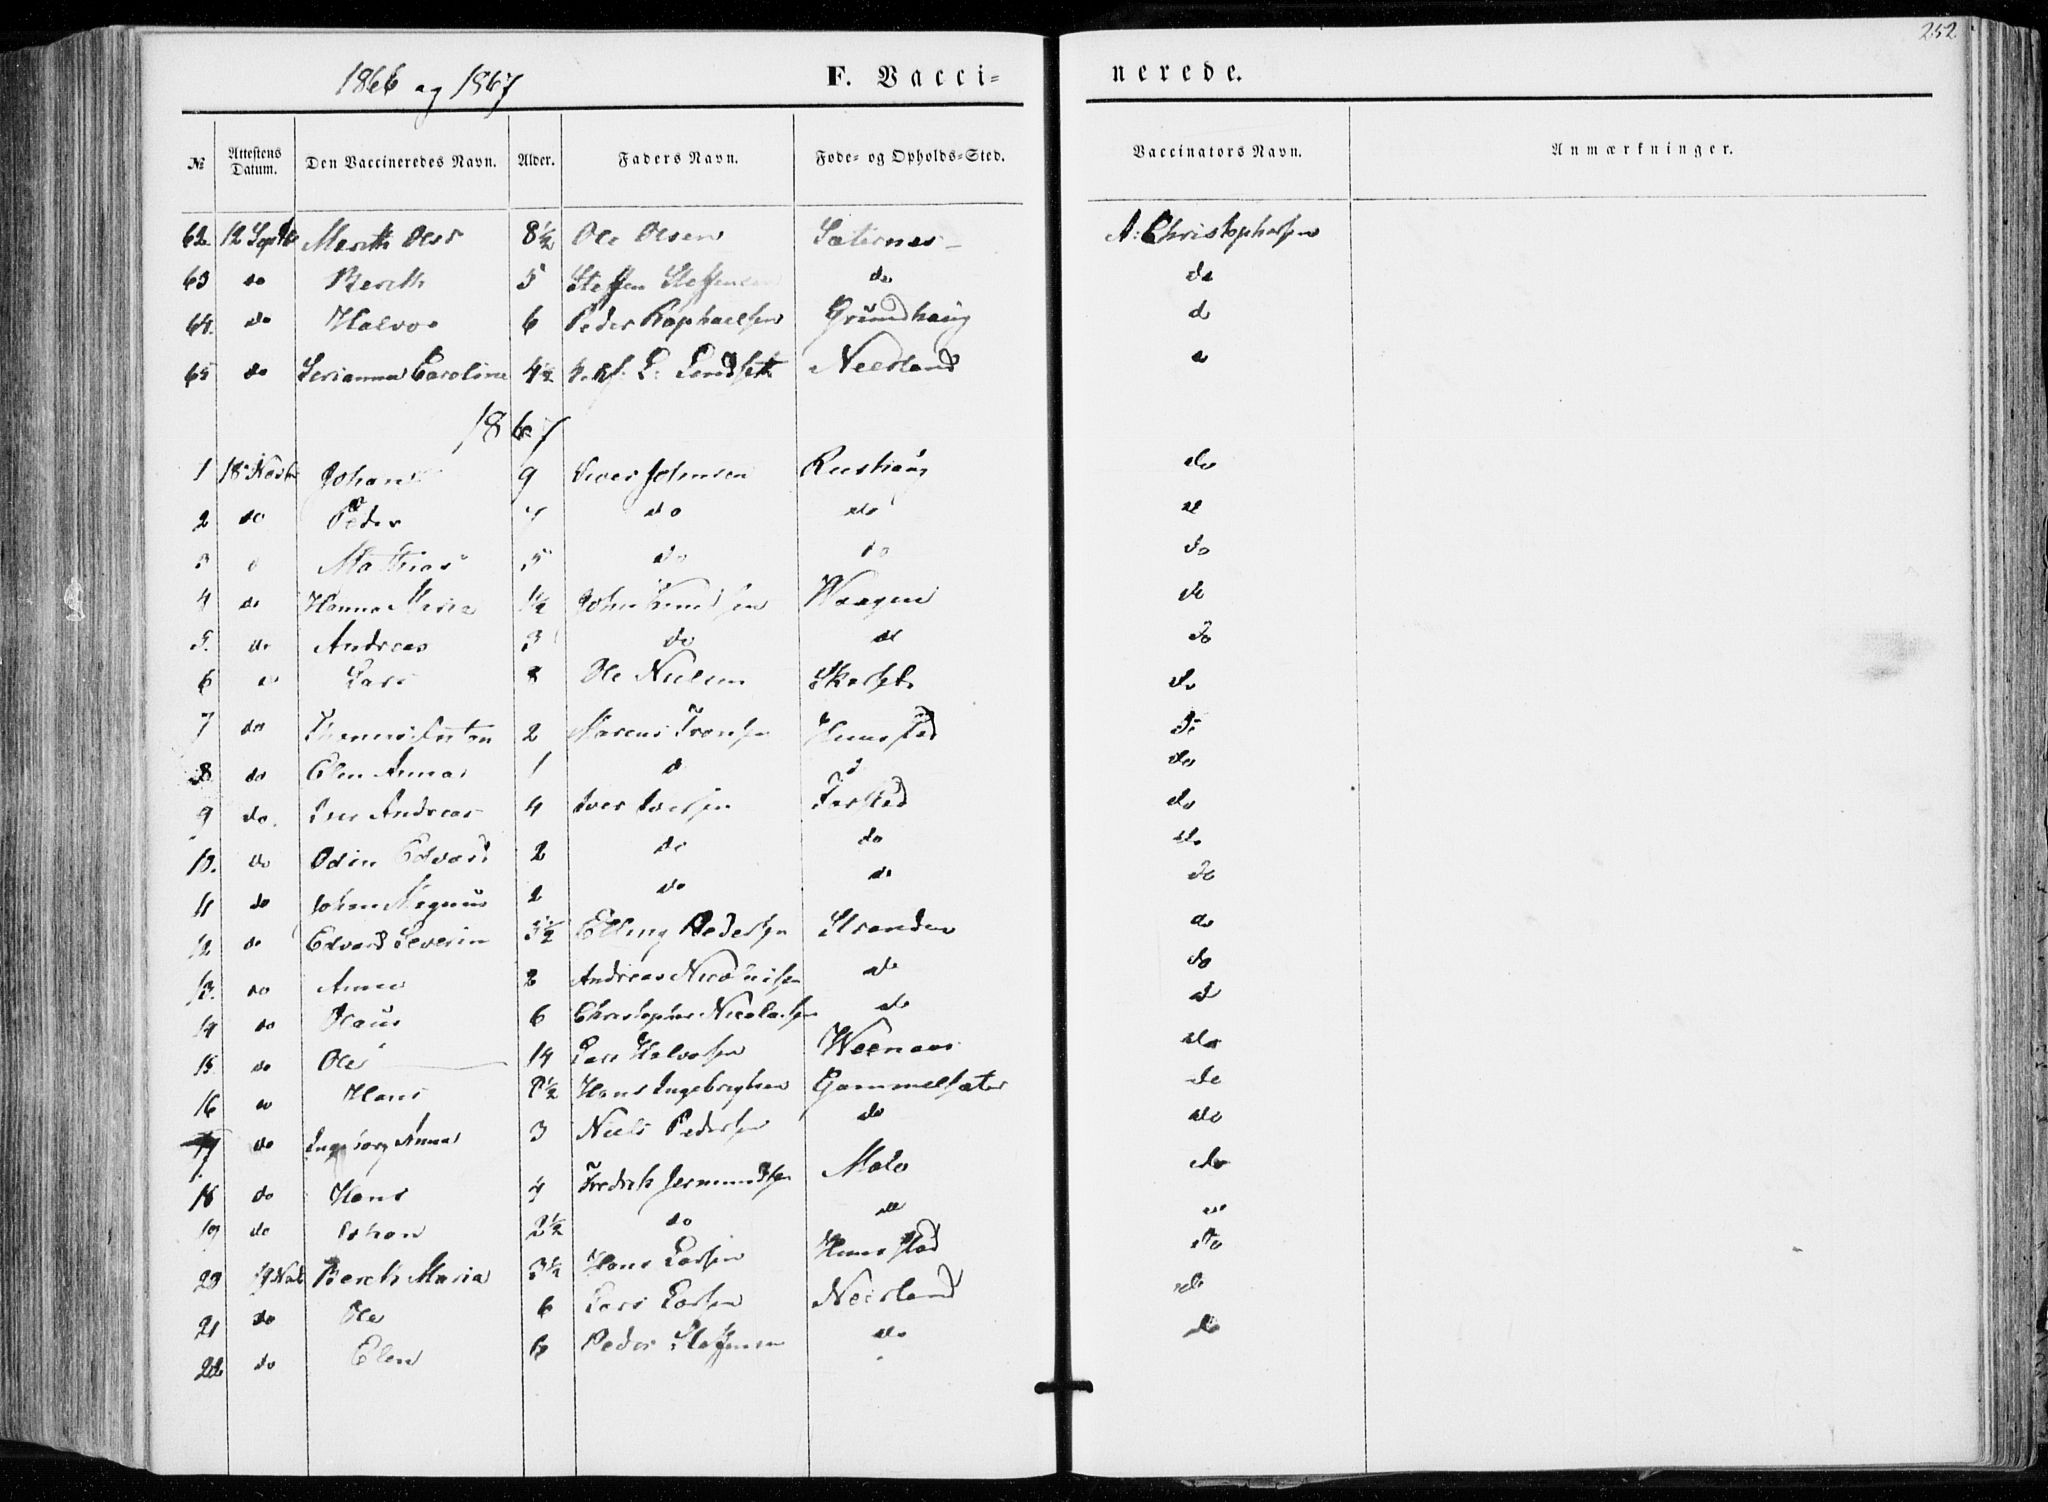 252
1866 og 1867 F. Vacci= nerede.
№ Attestens Datum. Den Vaccineredes Navn. Alder. Faders Navn. Føde- og Opholds-Sted. Vaccinators Navn. Anmærkninger.
62 12 Septb Merith Olsd 8½ Ole Olsen Sæternes A: Christophersen
63 do Bereth 5 Steffen Steffensen do do
64. do Halvor 6 Peder Raphaelsen Grundhaug do
65 do Serianna Caroline 4½ L: Lendseth Neerland
1867
1 18 Novbr Johan 9 Iver Johnsen Rushaug do
2 do Peder 7 do do do
3 Mathias 5 do do do
4 do Hanna Maria 1½ John Knudsen Waagen do
5. do Andreas 3 do do do
6 do Lars 8 Ole Nielsen Skarset do
7 do 2 Marcus Hunstad do
8 do Elen Anna 1 d d do
9 do. Iver Andreas 4 Iver Iversen Farstad do
10. do Odin Edvard 2 do do do
11 do Johan Magnus 2 do do do
12 do Edvard Severin 3½ Elling Pedersen Stranden do
13. do Anne 2 Andreas Nicolaisen do do
14 do Olaus 6 Christopher Nicolaisen do d
15 do Ole 14 Lars Halvorsen Weenaas do
16 do Hans 8½ Hans Ingebregtsen Gammelsæter do
17 do Ingeborg Anna 3 Niels Pedersen do do
18 do Hans 4 Fredrik Jermundsen Malo do
19 do Johan 2½ do do do
20 19 Novb Bereth Maria 3½ Hans Larsen Hunstad do
21 do Ole 6 Lars Larsen Neerland do
22 do Elen 6 Peder Steffensen do do